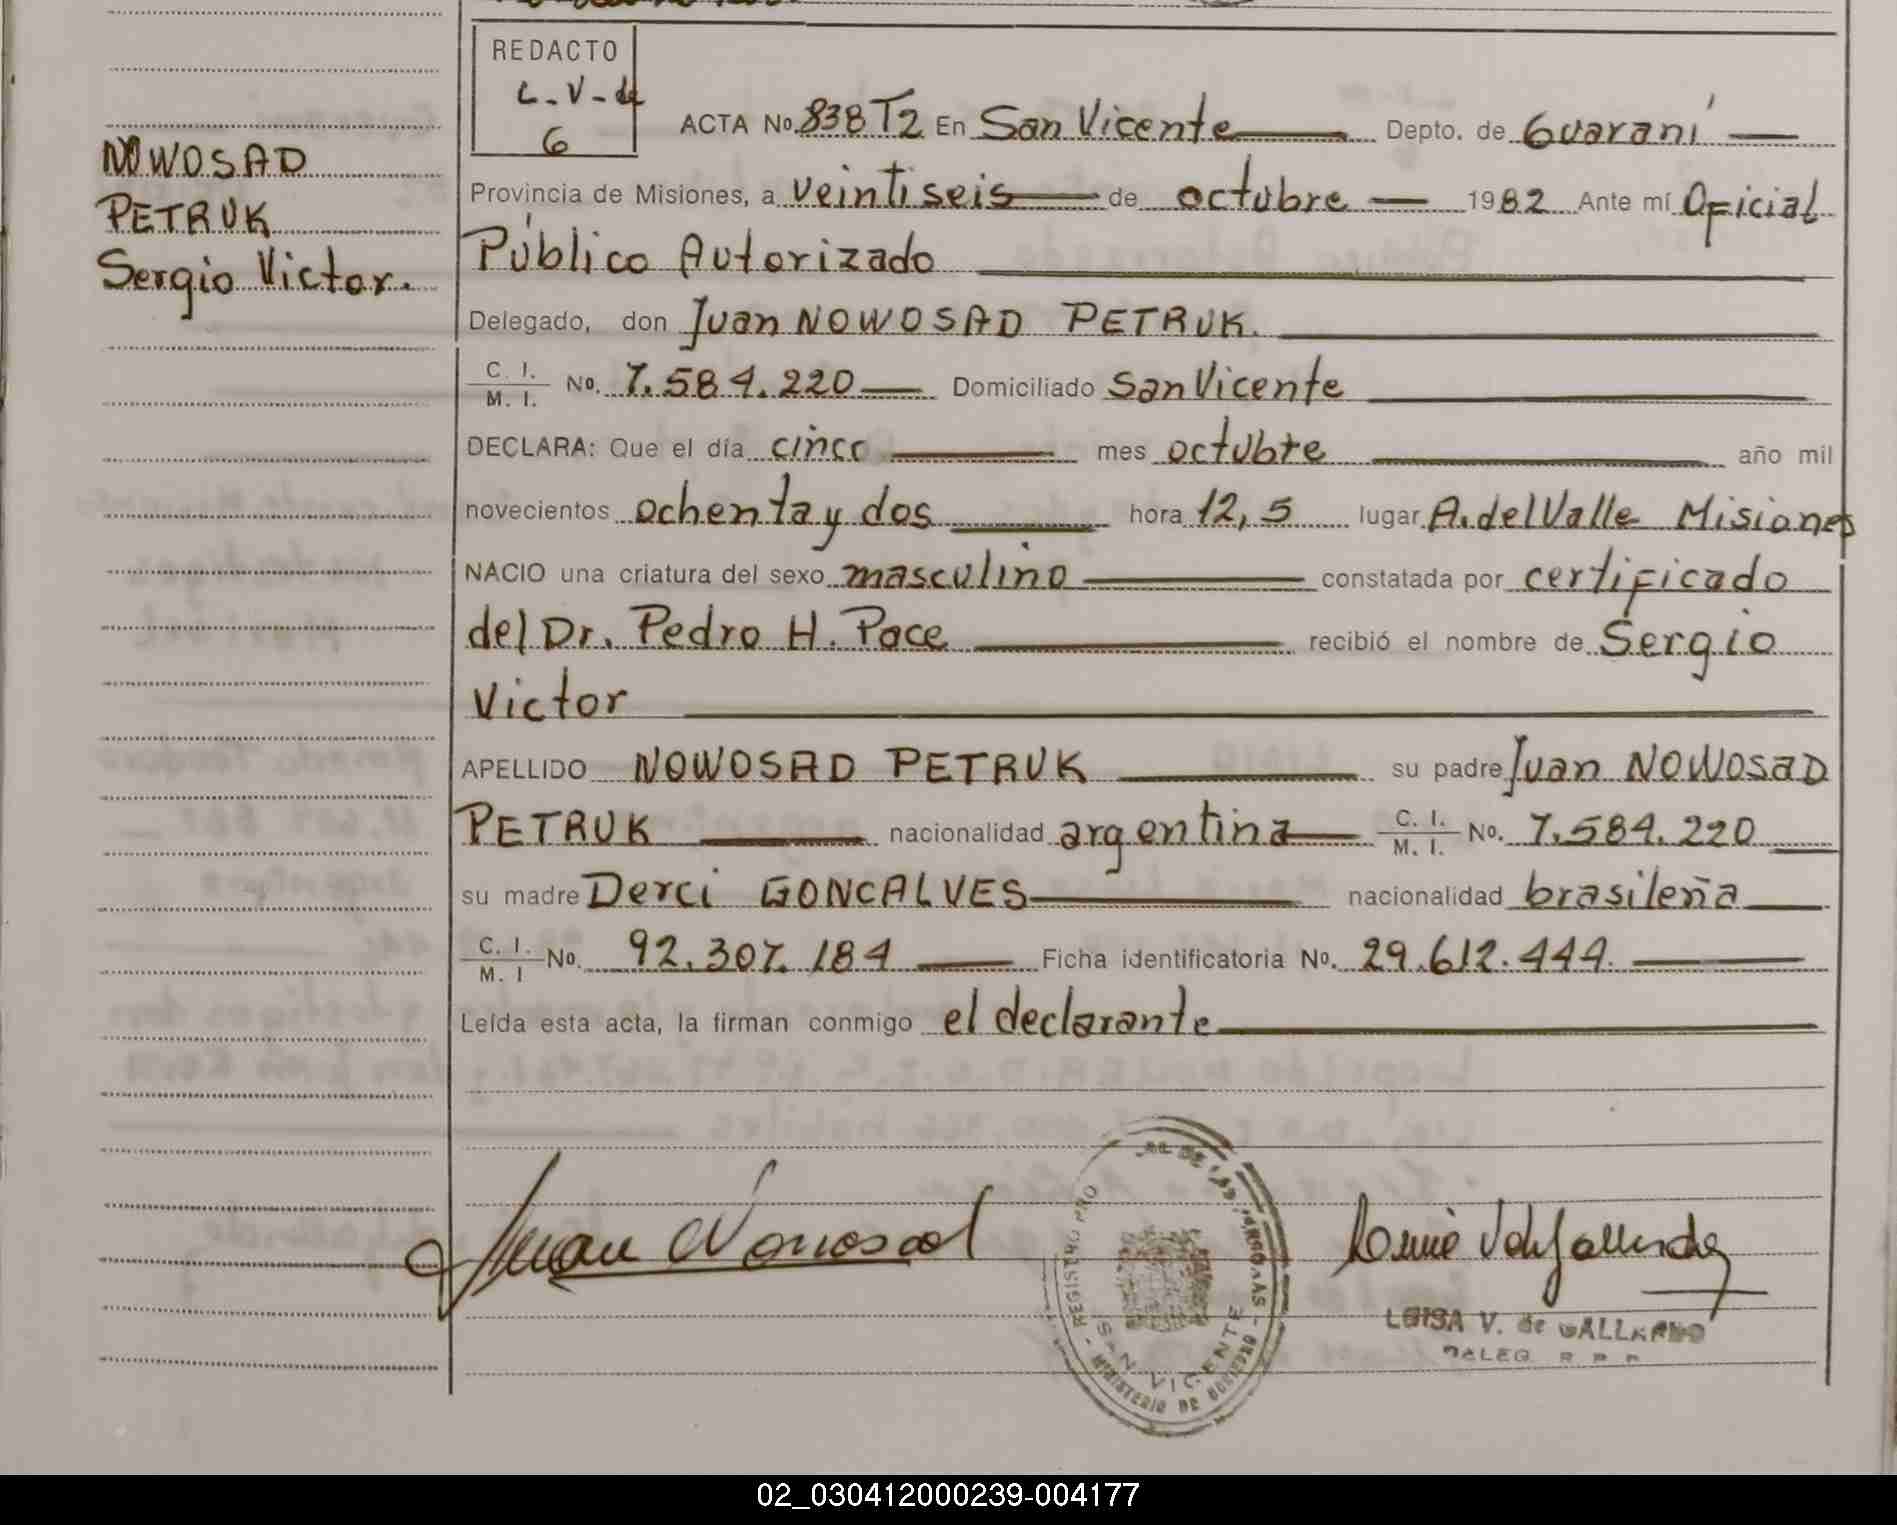 REDACTO
L-V-d
6
NOWOSAD
PETRUK
Sergio Victor.
ACTA No. 838 T2 En San Vicente Depto. de Guaraní
Provincia de Misiones, a veintiseis de octubre 1982 Ante mí Oficial
Público Autorizado
Delegado, don Juan NOWOSAD PETRUK.
C. I. / M. I. No. 7.584.220 Domiciliado San Vicente
DECLARA: Que el día cinco mes octubre año mil
novecientos ochenta y dos hora 12,5 lugar A. del Valle Misiones
NACIO una criatura del sexo masculino constatada por certificado
del Dr. Pedro H. Pace recibió el nombre de Sergio
Victor
APELLIDO NOWOSAD PETRUK su padre Juan NOWOSAD
PETRUK nacionalidad argentina C. I. / M. I. No. 7.584.220
su madre Derci GONCALVES nacionalidad brasileña
C. I. / M. I No. 92.307.184 Ficha identificatoria No. 29.612.444.
Leída esta acta, la firman conmigo el declarante
Juan Nowosad
REGISTRO
SAN VICENTE
MINISTERIO DE GOBIERNO
LUISA V. de GALLARDO
DELEG.
02_030412000239-004177